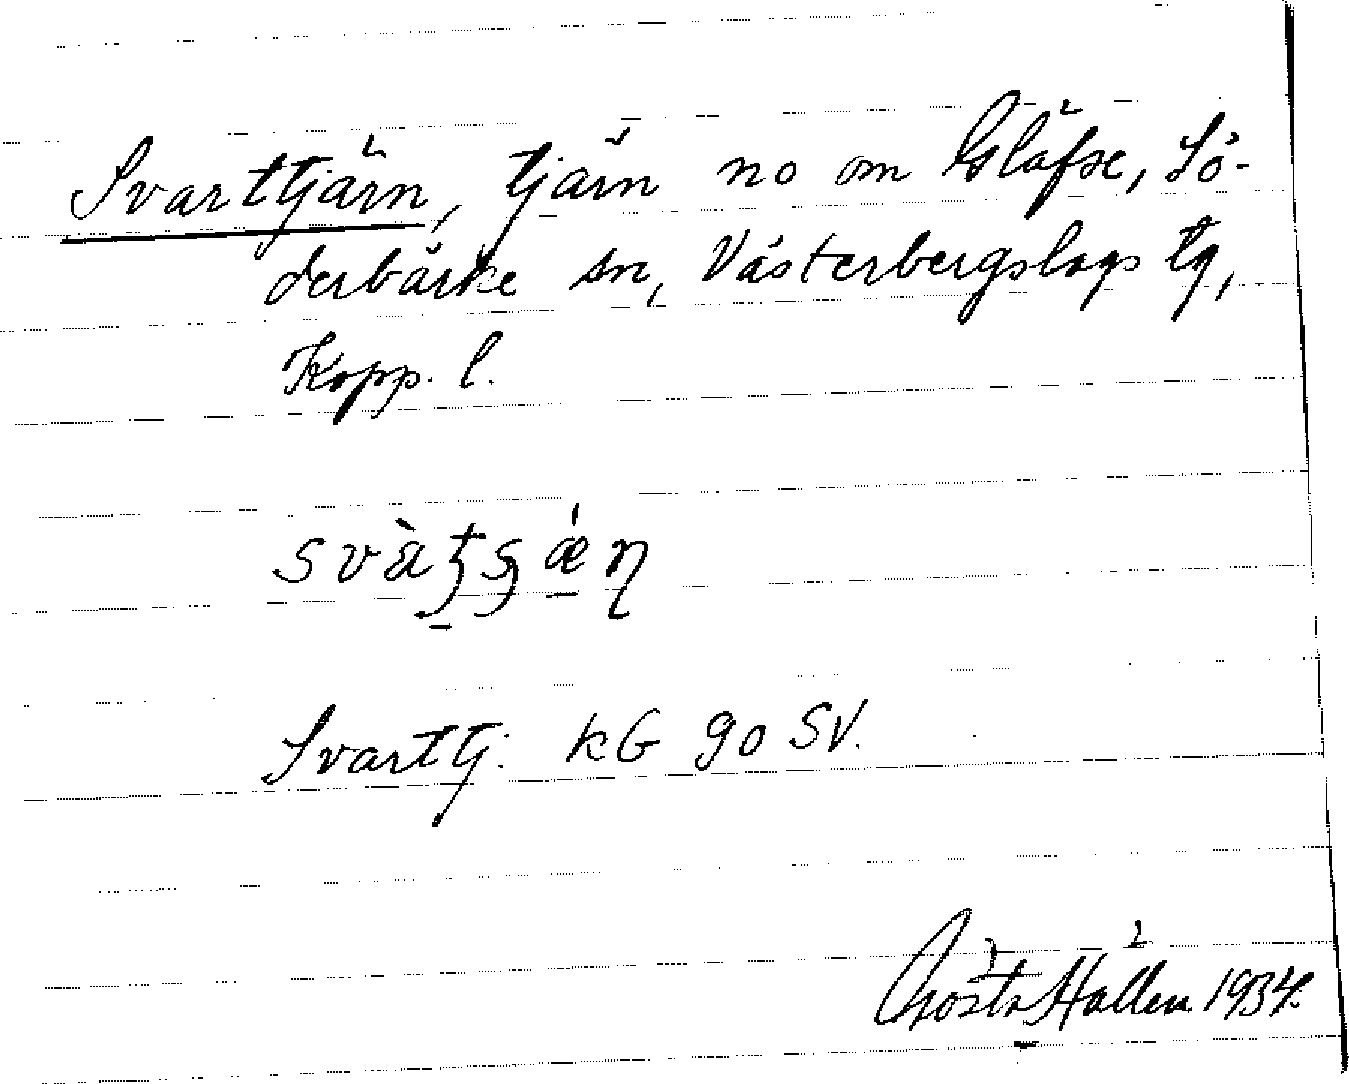 Svarttjärn, tjärn no om Gläfse, Sö-
derbärke sn, Västerbergslags tg,
Kopp. l.
svàʈʂǽɳ
Svarttj. KG 90 SV.
Gösta Hallén 1934.